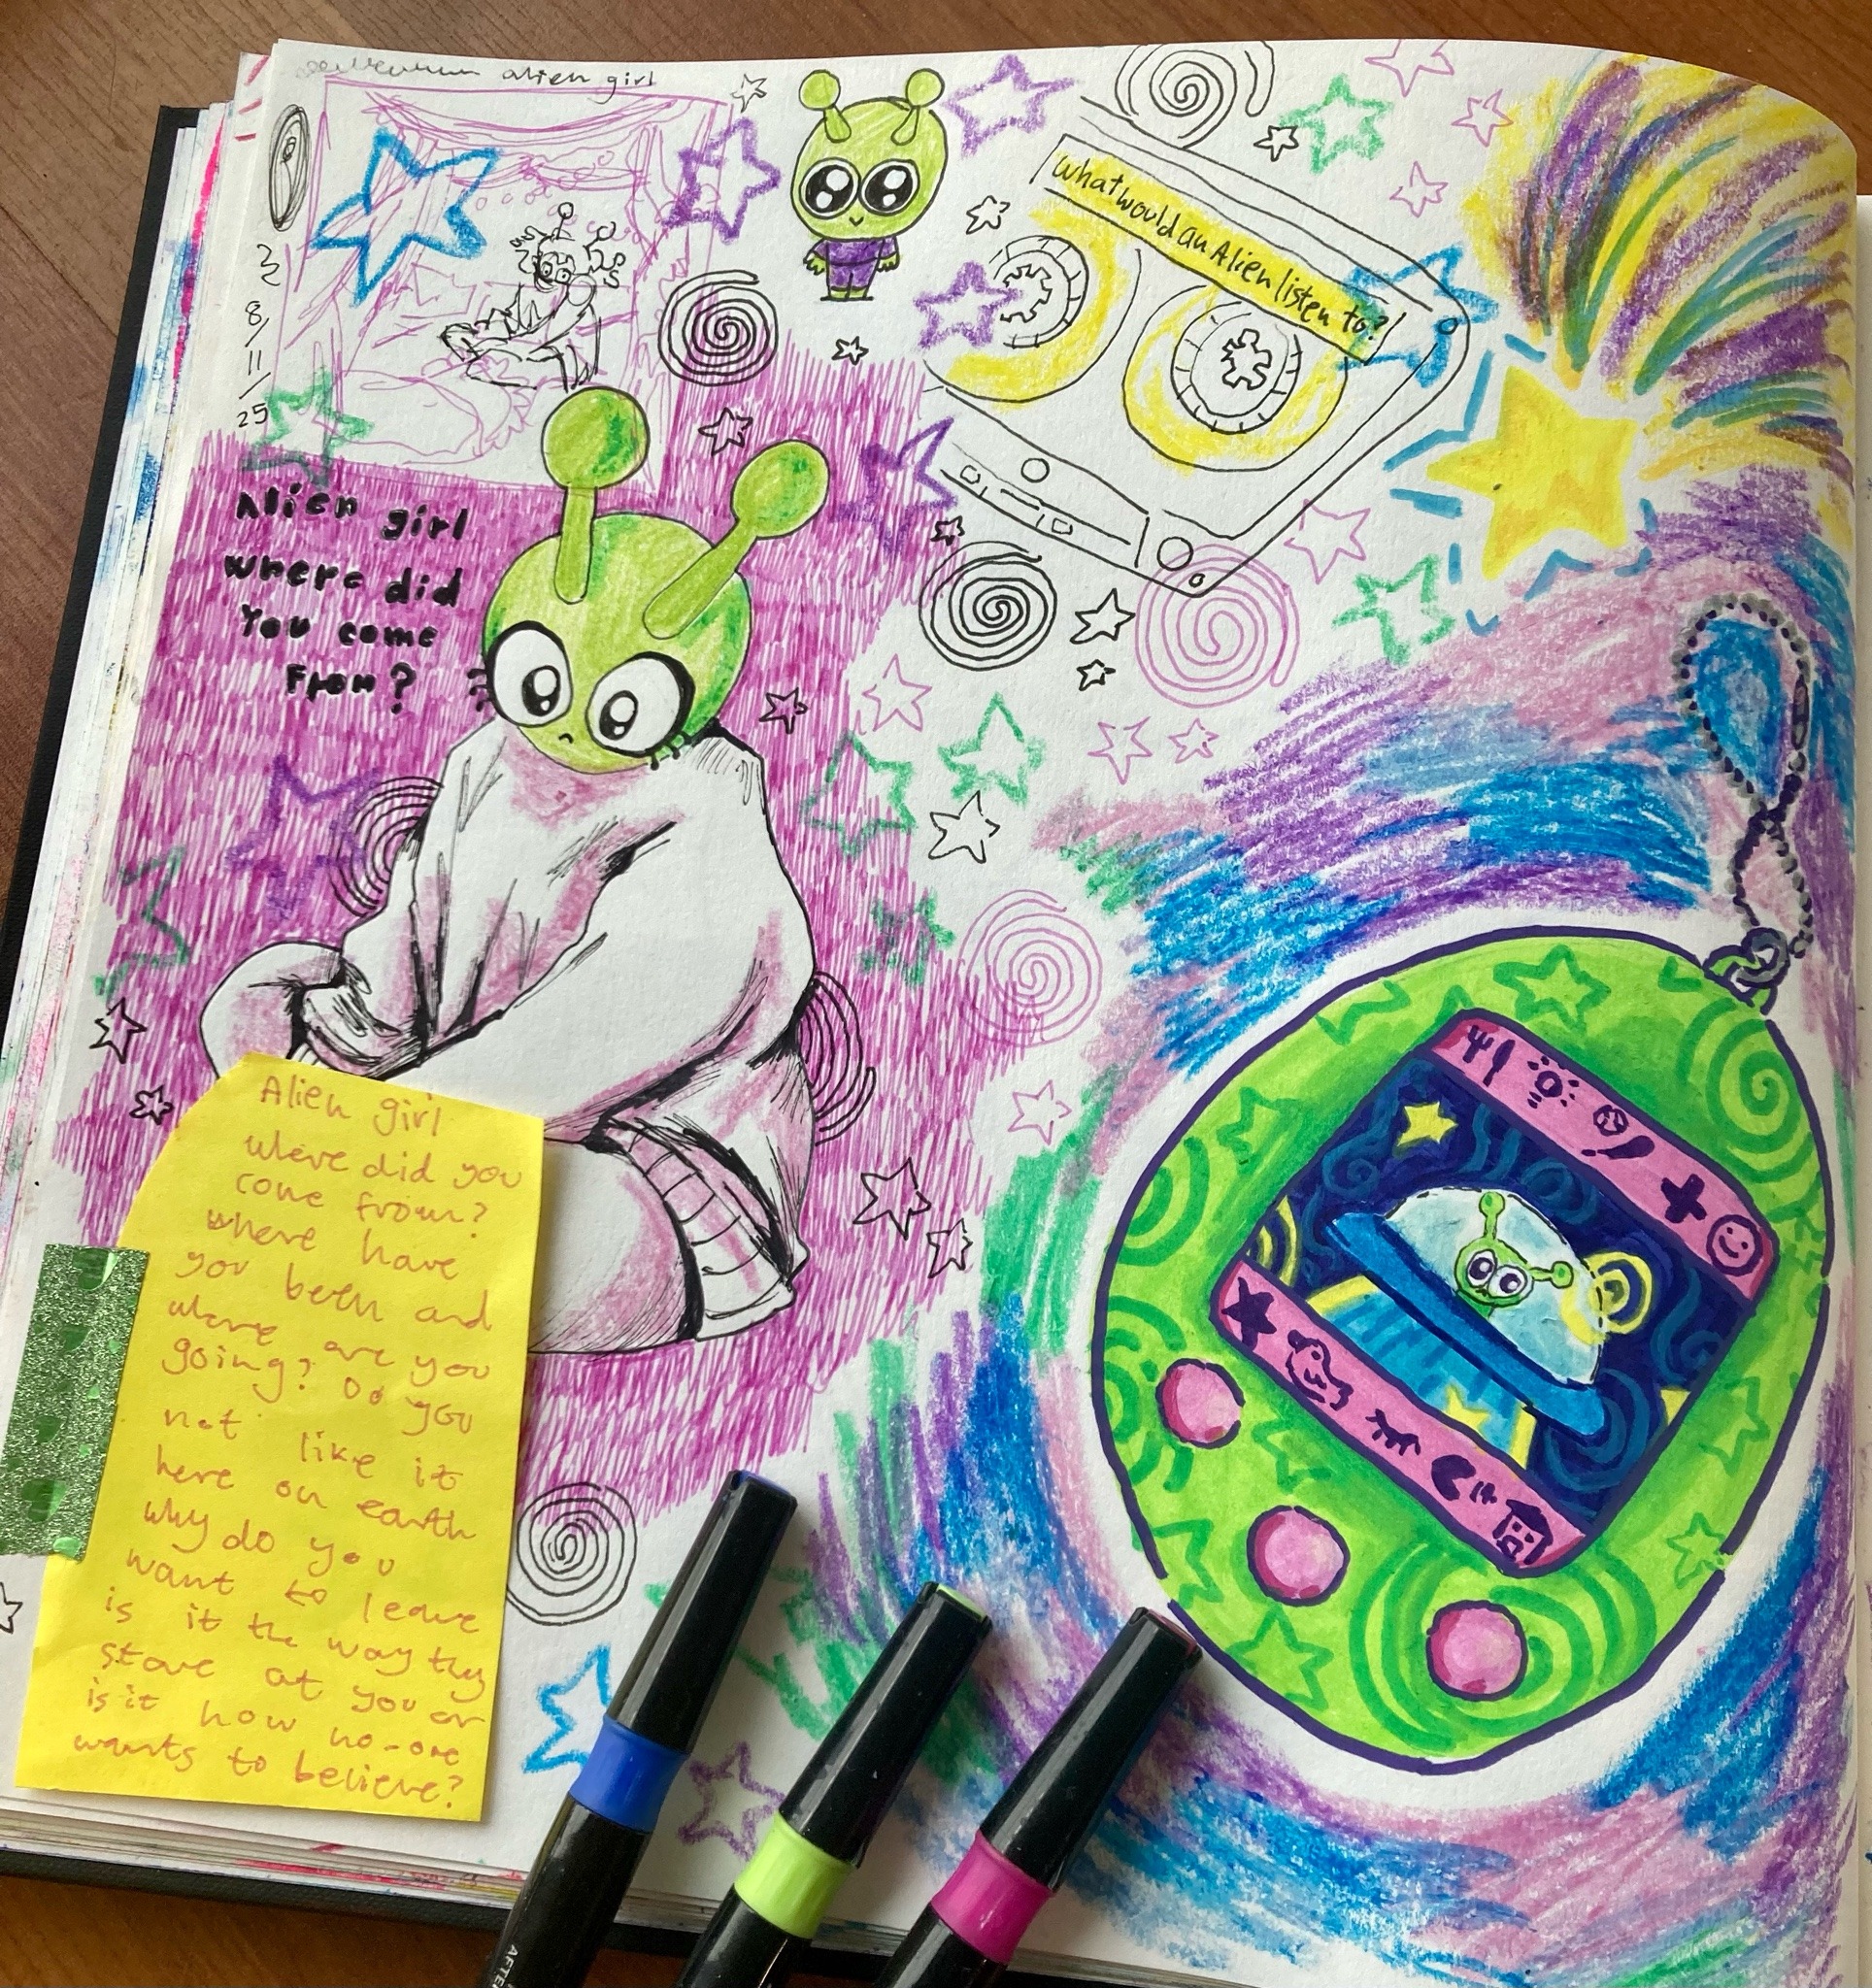 alien girl
8/11/25
What would an Alien listen to?
Alien girl
where did
You come
From?
Alien girl
where did you
come from?
where have
you been and
where are you
going? Do you
not like it
here on earth
why do you
want to leave
is it the way they
stare at you or
is it how no-one
wants to believe?